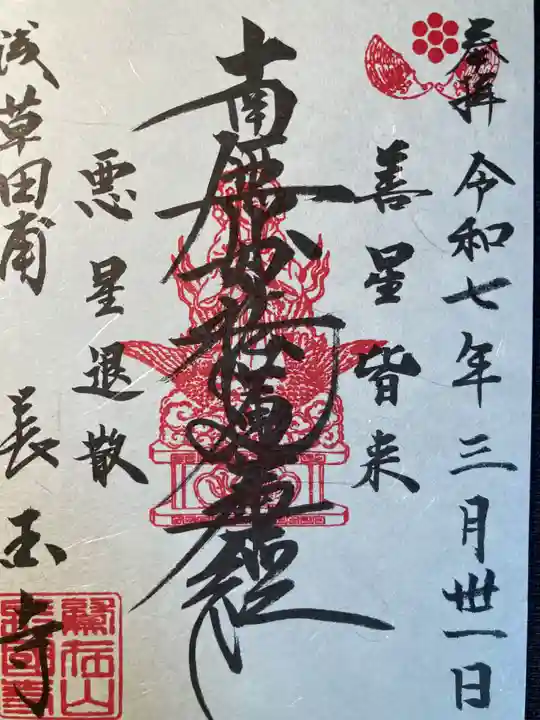 参拝
令和七年三月卅一日
善星皆来
南無妙法蓮華経
悪星退散
浅草田甫 長国寺
鷲在山
長國寺